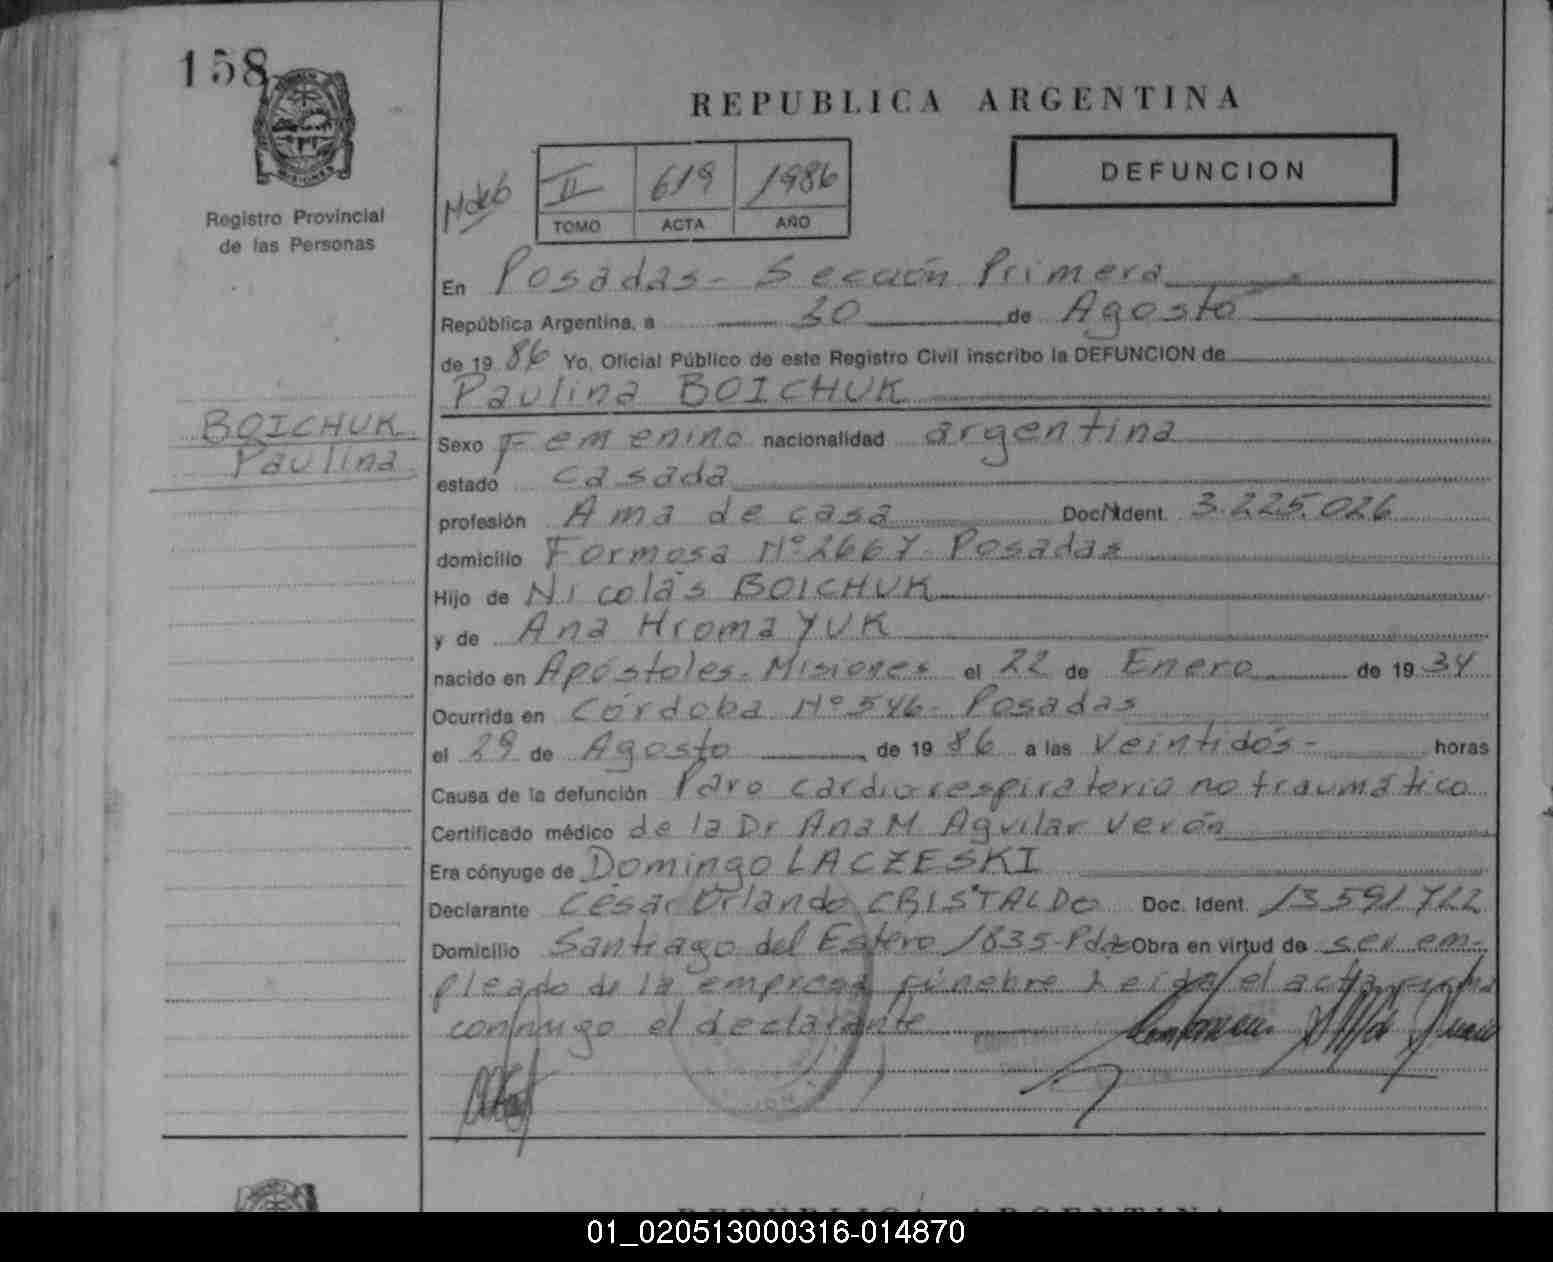 158
Registro Provincial
de las Personas
REPUBLICA ARGENTINA
DEFUNCION
II 619 1986
TOMO ACTA AÑO
En Posadas - Sección Primera
República Argentina, a 30 de Agosto
de 19 86 Yo, Oficial Público de este Registro Civil inscribo la DEFUNCION de
Paulina BOICHUK
BOICHUK
Paulina
Sexo Femenino nacionalidad argentina
estado casada
profesión Ama de casa Doc. Ident. 3.225.026
domicilio Formosa Nº 2667 - Posadas
Hijo de Nicolás BOICHUK
y de Ana HromaYUK
nacido en Apóstoles - Misiones el 22 de Enero de 19 34
Ocurrida en Córdoba Nº 546 - Posadas
el 29 de Agosto de 19 86 a las Veintidós - horas
Causa de la defunción Paro cardiorespiratorio no traumático
Certificado médico de la Dr Ana M. Aguilar Verón
Era cónyuge de Domingo LACZESKI
Declarante César Orlando CRISTALDO Doc. Ident. 13.591.722
Domicilio Santiago del Estero 1835 - Pdas Obra en virtud de ser em-
pleado de la empresa fúnebre Leida el acta, firma
conmigo el declarante
REPUBLICA ARGENTINA
01_020513000316-014870